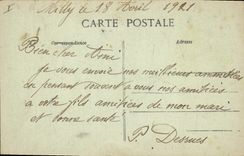 Milly le 18 Avril 1921
CARTE POSTALE
Correspondance Adresse
Bien cher Ami
Je vous envoie nos meilleures amitiés
en pensant souvent à vous nos amitiés
à votre fils amitiés de mon mari
et bonne santé
P. Desrues